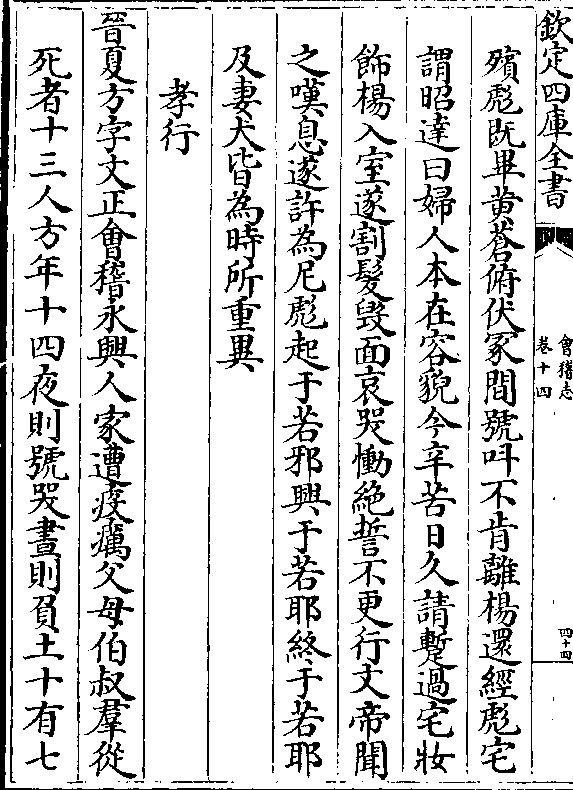 欽定四庫全書
會稽志
卷十四
四十四
殯彪既畢黄蒼俯伏冢間號呌不肯離楊還經彪宅
謂昭達曰婦人本在容貌今辛苦日久請蹔過宅妝
飾楊入室遂割髮毁面哀哭慟絶誓不更行文帝聞
之嘆息遂許為尼彪起于若邪興于若耶終于若耶
及妻犬皆為時所重異
孝行
晉夏方字文正會稽永興人家遭疫癘父母伯叔羣從
死者十三人方年十四夜則號哭晝則負土十有七